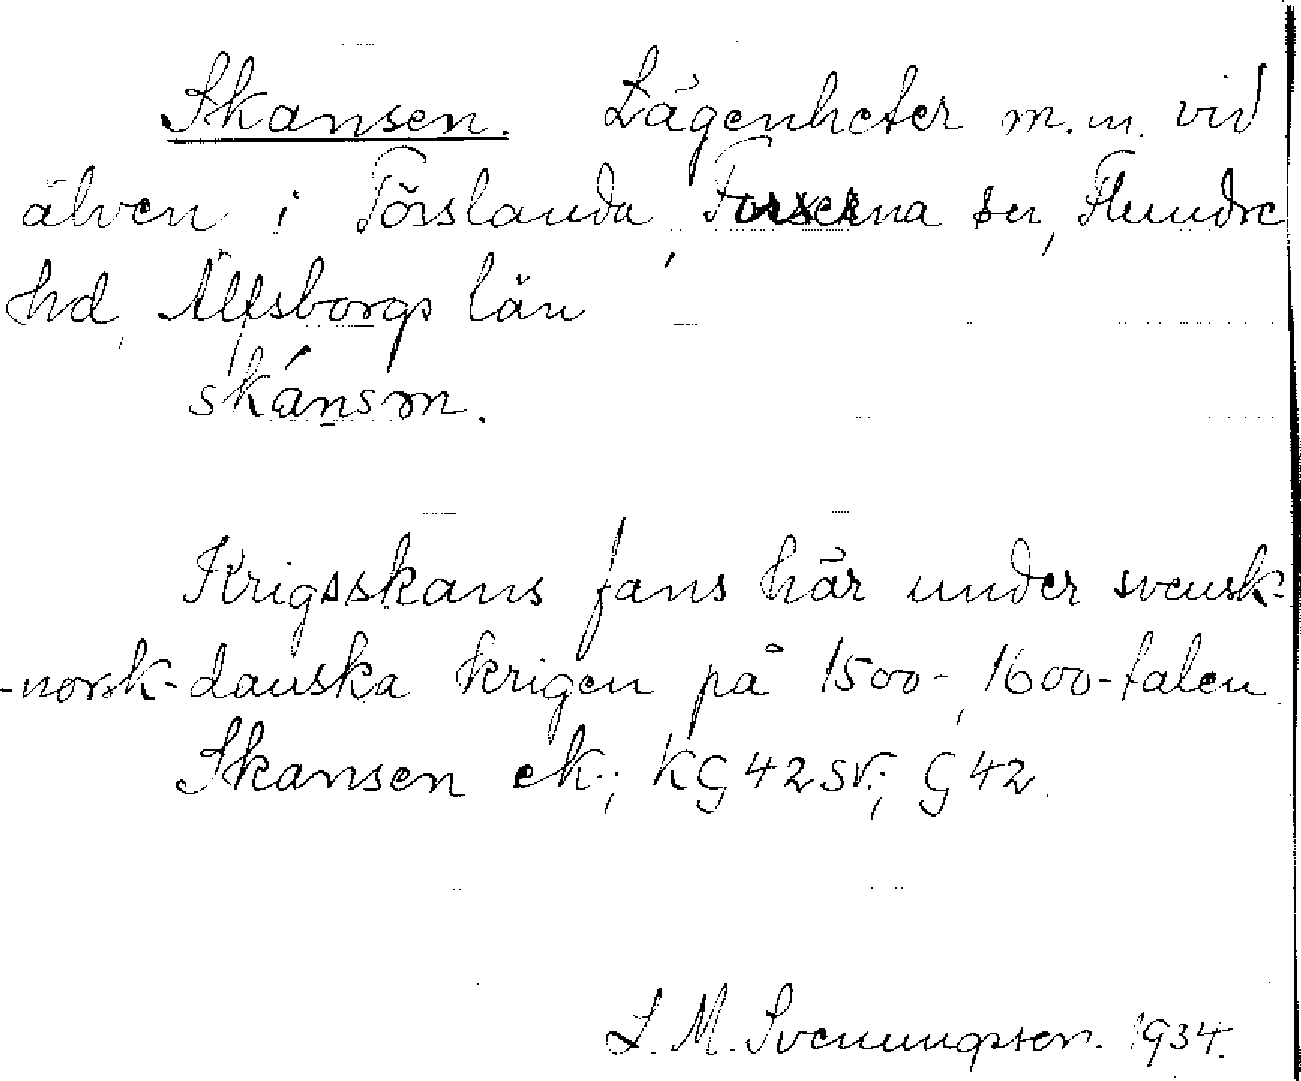 Skansen. Lägenheter m.m. vid
älven i Törslanda, Forserna sn, Flundre
hd, Älfsborgs län
skánsm.
Krigsskans fans här under svensk-
-norsk-danska krigen på 1500-, 1600-talen
Skansen ek.; KG42SV.; G42.
L. M. Svenungsson. 1934.